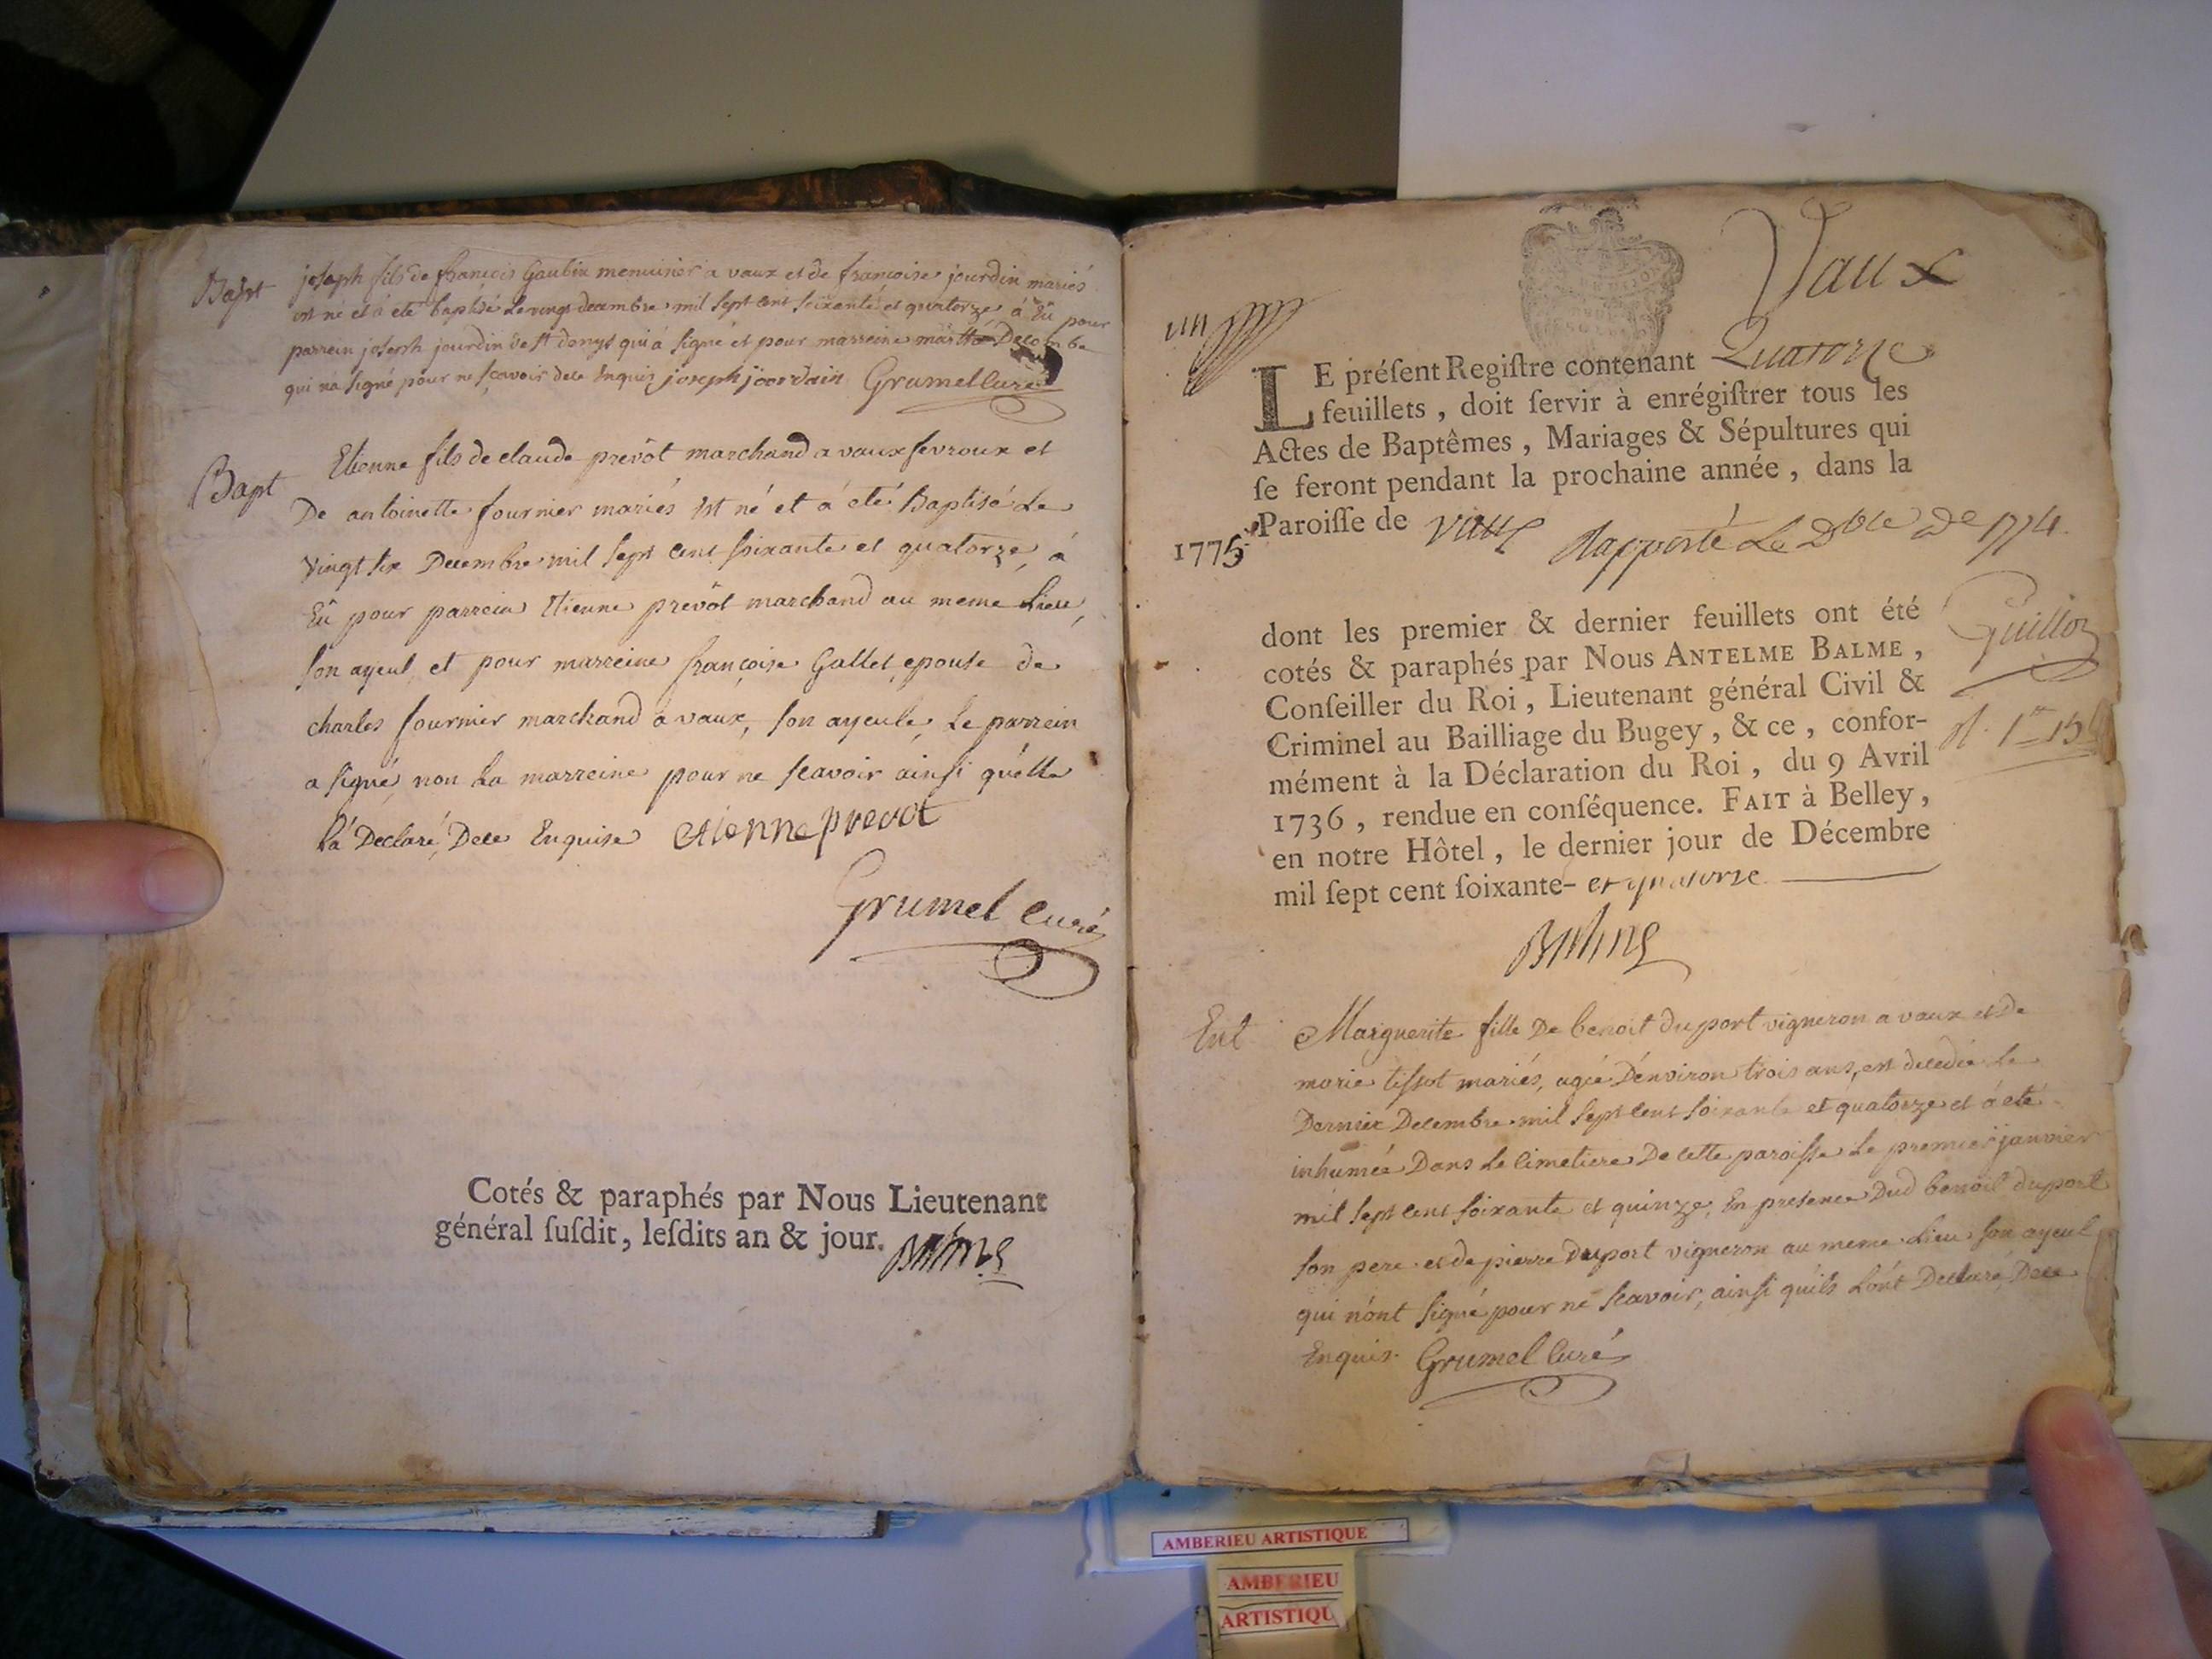 Bapt
joseph fils de francois Gaubin menuisier a vaux et de francoise jourdin mariés
est né et á eté baptisé le vingt decembre mil sept cent soixante et quatorze, á Eû pour
parrein joseph jourdin de st denys qui á signé et pour marreine
qui na signé pour ne sçavoir dece Enquis joseph jourdain Grumel Curé
Bapt
Etienne fils de claude prevôt marchand a vaux fevroux et
De antoinette fournier mariés est né et á eté Baptisé Le
vingt six Decembre mil sept cent soixante et quatorze, á
Eû pour parrein Etienne prevôt marchand au meme Lieu,
son ayeul, et pour marreine françoise Gallet epouse de
charles fournier marchand á vaux, son ayeule, Le parrein
a signé, non La marreine pour ne scavoir ainsi qu'elle
La Declaré, Dece Enquise etienne prevot
Grumel Curé
Cotés & paraphés par Nous Lieutenant
général ſuſdit, leſdits an & jour. Balme
Vaux
un
LE préſent Regiſtre contenant Quatorze
feuillets, doit ſervir à enrégiſtrer tous les
Actes de Baptêmes, Mariages & Sépultures qui
ſe feront pendant la prochaine année, dans la
Paroiſſe de Vaux Rapporté Le Dble de 1774.
1775
dont les premier & dernier feuillets ont été
cotés & paraphés par Nous ANTELME BALME,
Conſeiller du Roi, Lieutenant général Civil &
Criminel au Bailliage du Bugey, & ce, confor-
mément à la Déclaration du Roi, du 9 Avril
1736, rendue en conſéquence. FAIT à Belley,
en notre Hôtel, le dernier jour de Décembre
mil ſept cent ſoixante- et quatorze
Guillot
Balme
Ent
Marguerite fille De benoit duport vigneron a vaux et de
marie tissot mariés, agée D'environ trois ans, est decedée Le
Dernier Decembre mil sept cent soixante et quatorze et á eté
inhumée Dans Le Cimetiere De cette paroisse Le premier janvier
mil sept cent soixante et quinze, En presence Dud benoit duport
son pere et de pierre duport vigneron au meme Lieu son ayeul
qui n'ont signé pour ne scavoir, ainsi qu'ils L'ont Declaré, Dece
Enquis. Grumel Curé
AMBERIEU ARTISTIQUE
AMBERIEU
ARTISTIQU